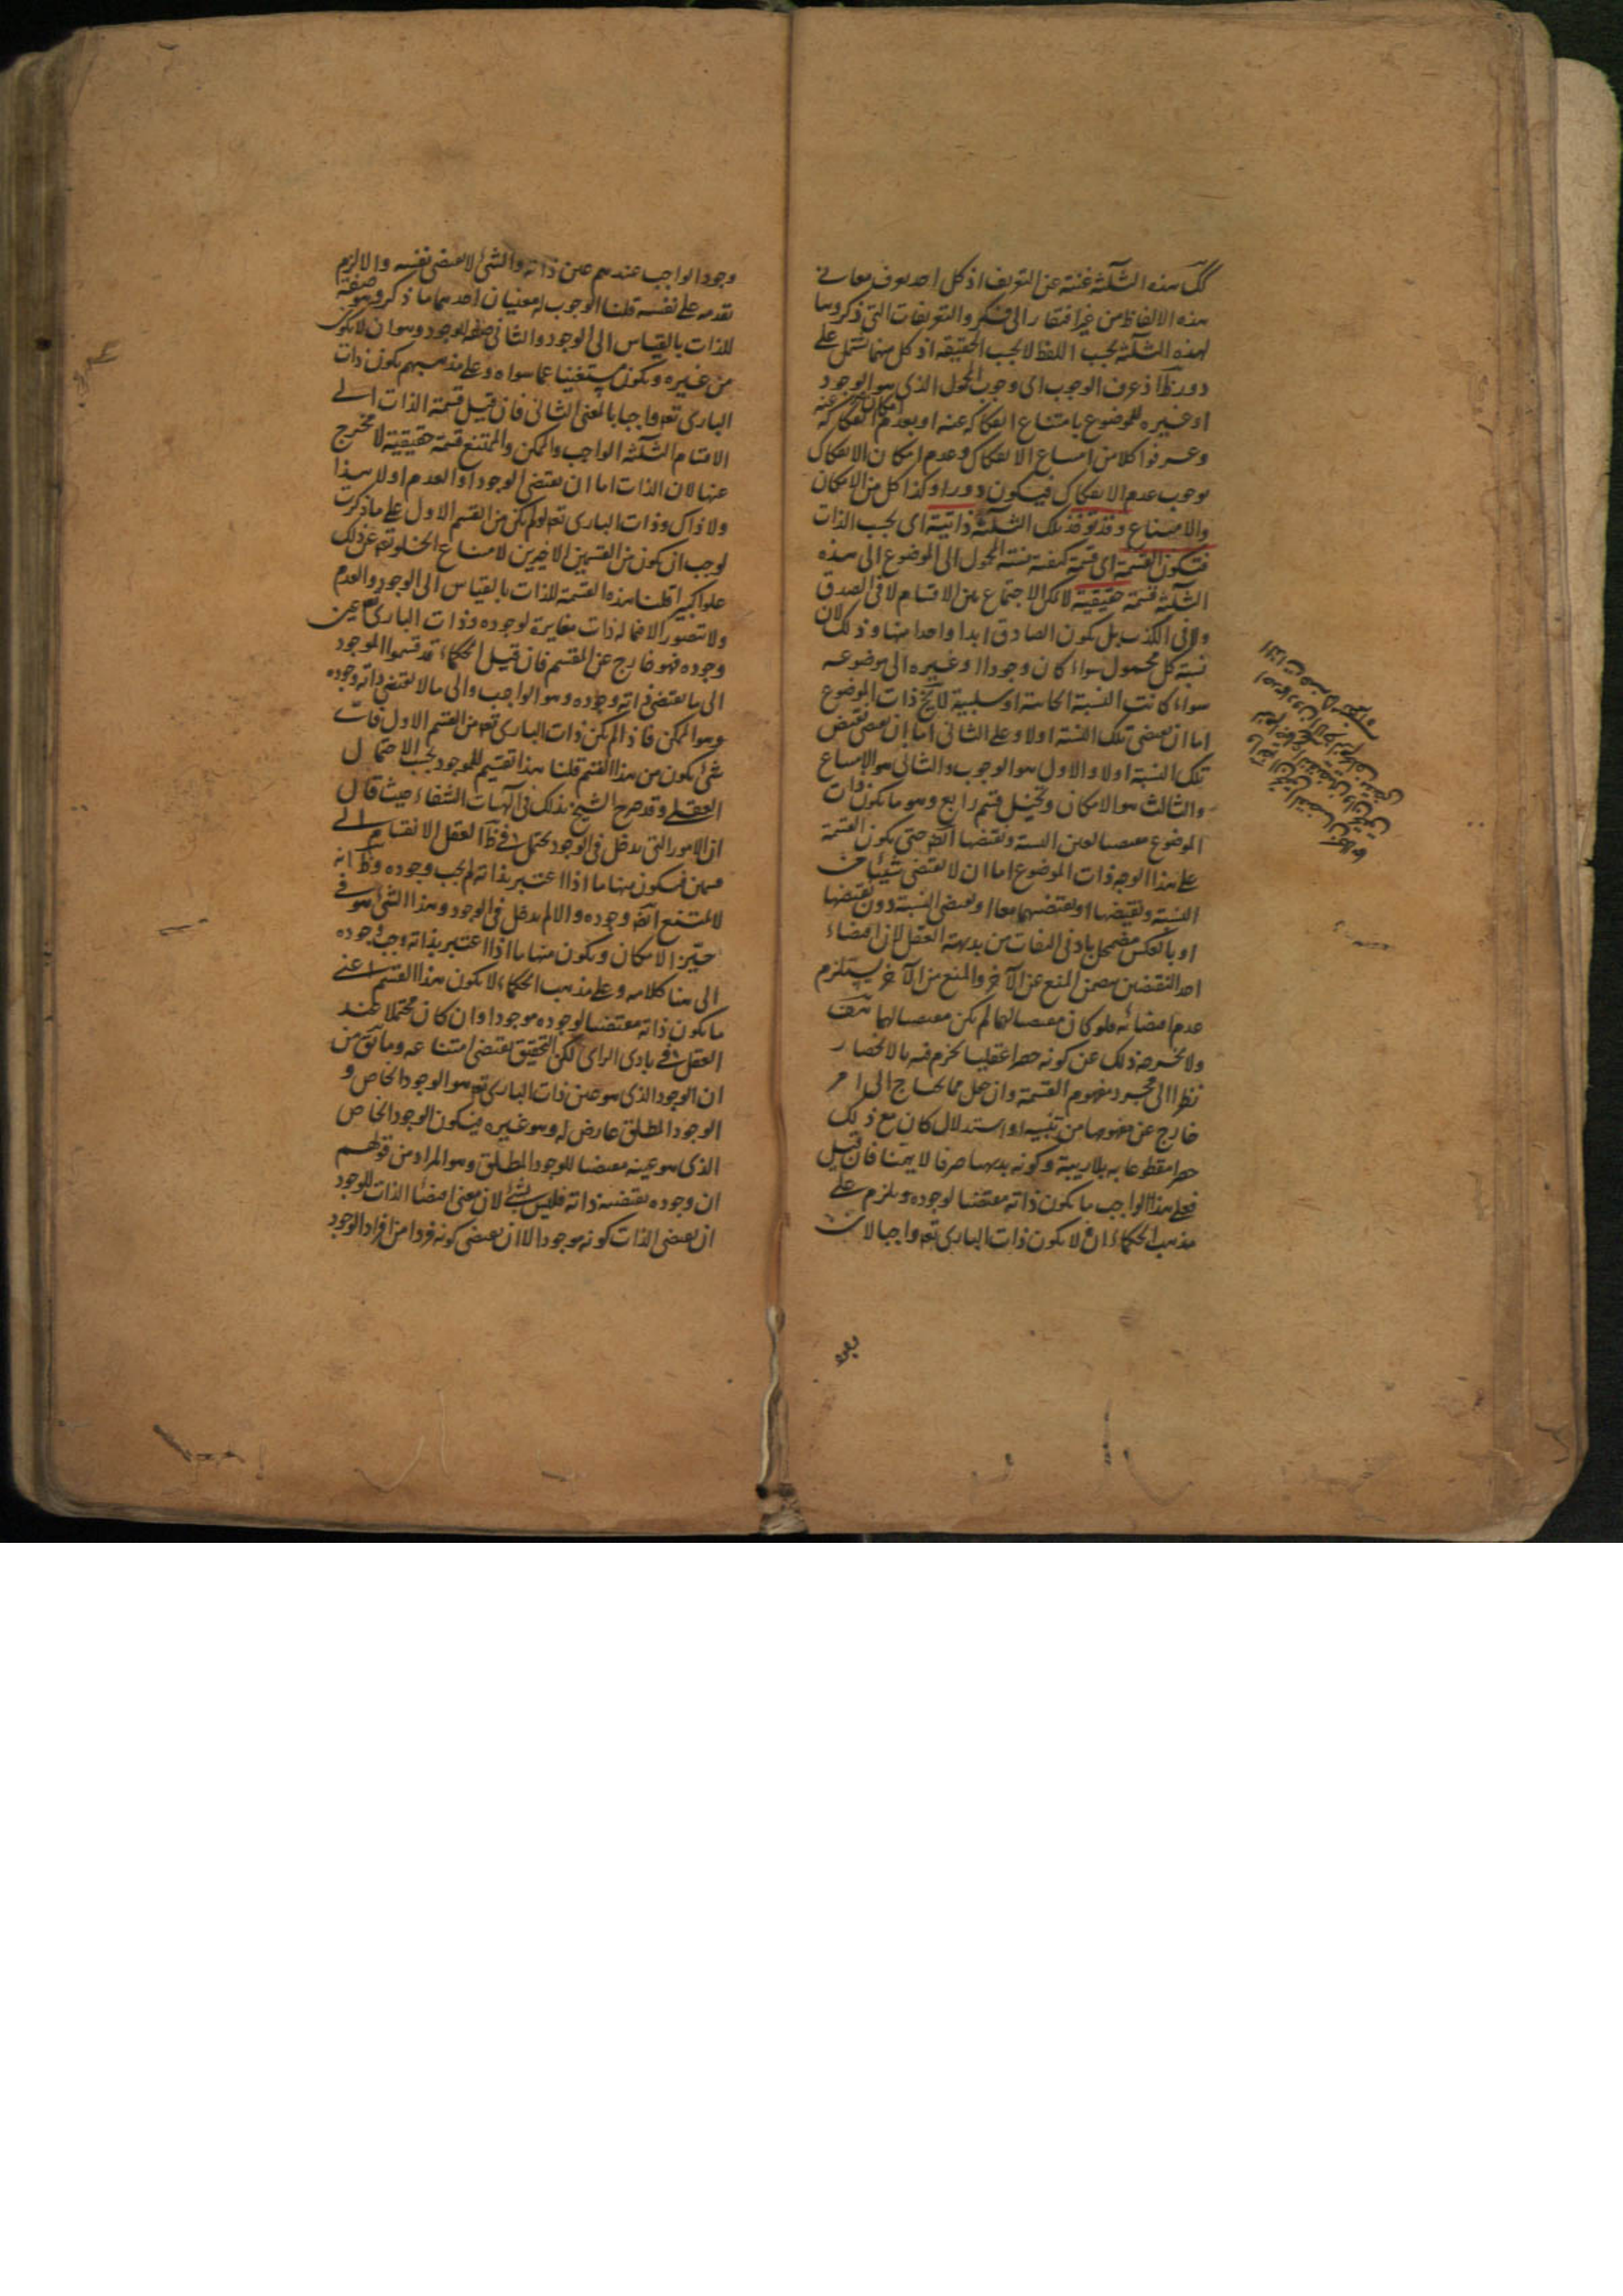 كك هذه الثلثة غنية عن التعريف اذ كل احد يعرف معانى
هذه الالفاظ من غير افتقار الى فكر والتعريفات التى ذكروها
لهذه الثلثة بحسب اللفظ لا بحسب الحقيقة اذ كل منها مشتمل على
دور ظ اذ عرف الوجوب اى وجوب المحمول الذى هو الوجود
او غيره للموضوع بامتناع انفكاكه عنه او بعدم امكان انفكاكه عنه
وعرفوا كلا من امتناع الانفكاك وعدم امكان الانفكاك
بوجوب عدم الانفكاك فيكون دورا وكذا كل من الامكان
والامتناع وقد توخذ تلك الثلثة ذاتية اى بحسب الذات
فتكون القسمة اى قسمة كيفية نسبة المحمول الى الموضوع الى هذه
الثلثة قسمة حقيقية لا يمكن الاجتماع بين الاقسام لا فى الصدق
ولا فى الكذب بل يكون الصادق ابدا واحدا منها وذلك لان
نسبة كل محمول سواء كان وجودا او غيره الى موضوعه
سواء كانت النسبة ايجابية او سلبية لا يخ ذات الموضوع
اما ان يقتضى تلك النسبة اولا وعلى الثانى اما ان يقتضى نقيض
تلك النسبة اولا والاول هو الوجوب والثانى هو الامتناع
والثالث هو الامكان وتخيل قسم رابع وهو ما يكون ذات
الموضوع مقتضيا لعين النسبة ونقيضها ايضا حتى يكون القسمة
على هذا الوجه ذات الموضوع اما ان لا يقتضى شيئا من
النسبة ونقيضها او يقتضيهما معا او يقتضى النسبة دون نقيضها
او بالعكس مضمحل بادنى التفات من بديهة العقل لان اقتضاء
احد النقيضين يتضمن المنع عن الآخر والمنع من الآخر يستلزم
عدم اقتضائه فلو كان مقتضيا لهما لم يكن مقتضيا لهما هف
ولا يخرجه ذلك عن كونه حصرا عقليا يجزم فيه بالانحصار
نظرا الى مجرد مفهوم القسمة وان جعل مما يحتاج الى امر
خارج عن مفهومها من تنبيه او استدلال كان مع ذلك
حصرا مقطوعا به بلا ريبة وكونه بديهيا صرفا لا يهمنا فان قيل
فعلى هذا الواجب ما يكون ذاته مقتضيا لوجوده ويلزم على
مذهب الحكماء ان لا يكون ذات البارى تعه واجبا لان
وجود الواجب عندهم عين ذاته والشئ لا يقتضى نفسه والا لزم
تقدمه على نفسه قلنا الوجوب له معنيان احدهما ما ذكر وهو صفة
للذات بالقياس الى الوجود والثانى صفة للوجود وهو ان لا يكون
من غيره ويكون مستغنيا عما سواه وعلى مذهبهم يكون ذات
البارى تعه واجبا بالمعنى الثانى فان قيل قسمة الذات الى
الاقسام الثلثة الواجب والممكن والممتنع قسمة حقيقية لا مخرج
عنها لان الذات اما ان يقتضى الوجود او العدم اولا هذا
ولا ذاك وذات البارى تعه لو لم يكن من القسم الاول على ما ذكرت
لوجب ان يكون من القسمين الاخيرين لامتناع الخلو تعه عن ذلك
علوا كبيرا قلنا هذه القسمة للذات بالقياس الى الوجود والعدم
ولا يتصور الا فيما له ذات مغايرة لوجوده وذات البارى تعه عين
وجوده فهو خارج عن المقسم فان قيل الحكماء قد قسموا الموجود
الى ما يقتضى ذاته وجوده وهو الواجب والى ما لا يقتضى ذاته وجوده
وهو الممكن فاذا لم يكن ذات البارى تعه من القسم الاول فات
شئ يكون من هذا القسم قلنا هذا تقسيم للموجود بحسب الاحتمال
العقلى وقد صرح الشيخ بذلك فى الهيات الشفاء حيث قال
ان الامور التى يدخل فى الوجود يحتمل فى ظ العقل الانقسام الى
قسمين فيكون منها ما اذا اعتبر بذاته لم يجب وجوده وظ انه
لا يمتنع ايضا وجوده والا لم يدخل فى الوجود وهذا الشئ هو فى
حيّز الامكان ويكون منها ما اذا اعتبر بذاته وجب وجوده
الى هنا كلامه وعلى مذهب الحكماء لا يكون هذا القسم اعنى
ما يكون ذاته مقتضيا لوجوده موجودا وان كان محتملا عند
العقل فى بادى الراى لكن التحقيق يقتضى امتناعه وما يق من
ان الوجود الذى هو عين ذات البارى تعه هو الوجود الخاص و
الوجود المطلق عارض له وهو غيره فيكون الوجود الخاص
الذى هو عينه مقتضيا للوجود المطلق وهو المراد من قولهم
ان وجوده يقتضيه ذاته فليس بشئ لان معنى اقتضاء الذات للوجود
ان يقتضى الذات كونه موجودا لا ان يقتضى كونه فردا من افراد الوجود